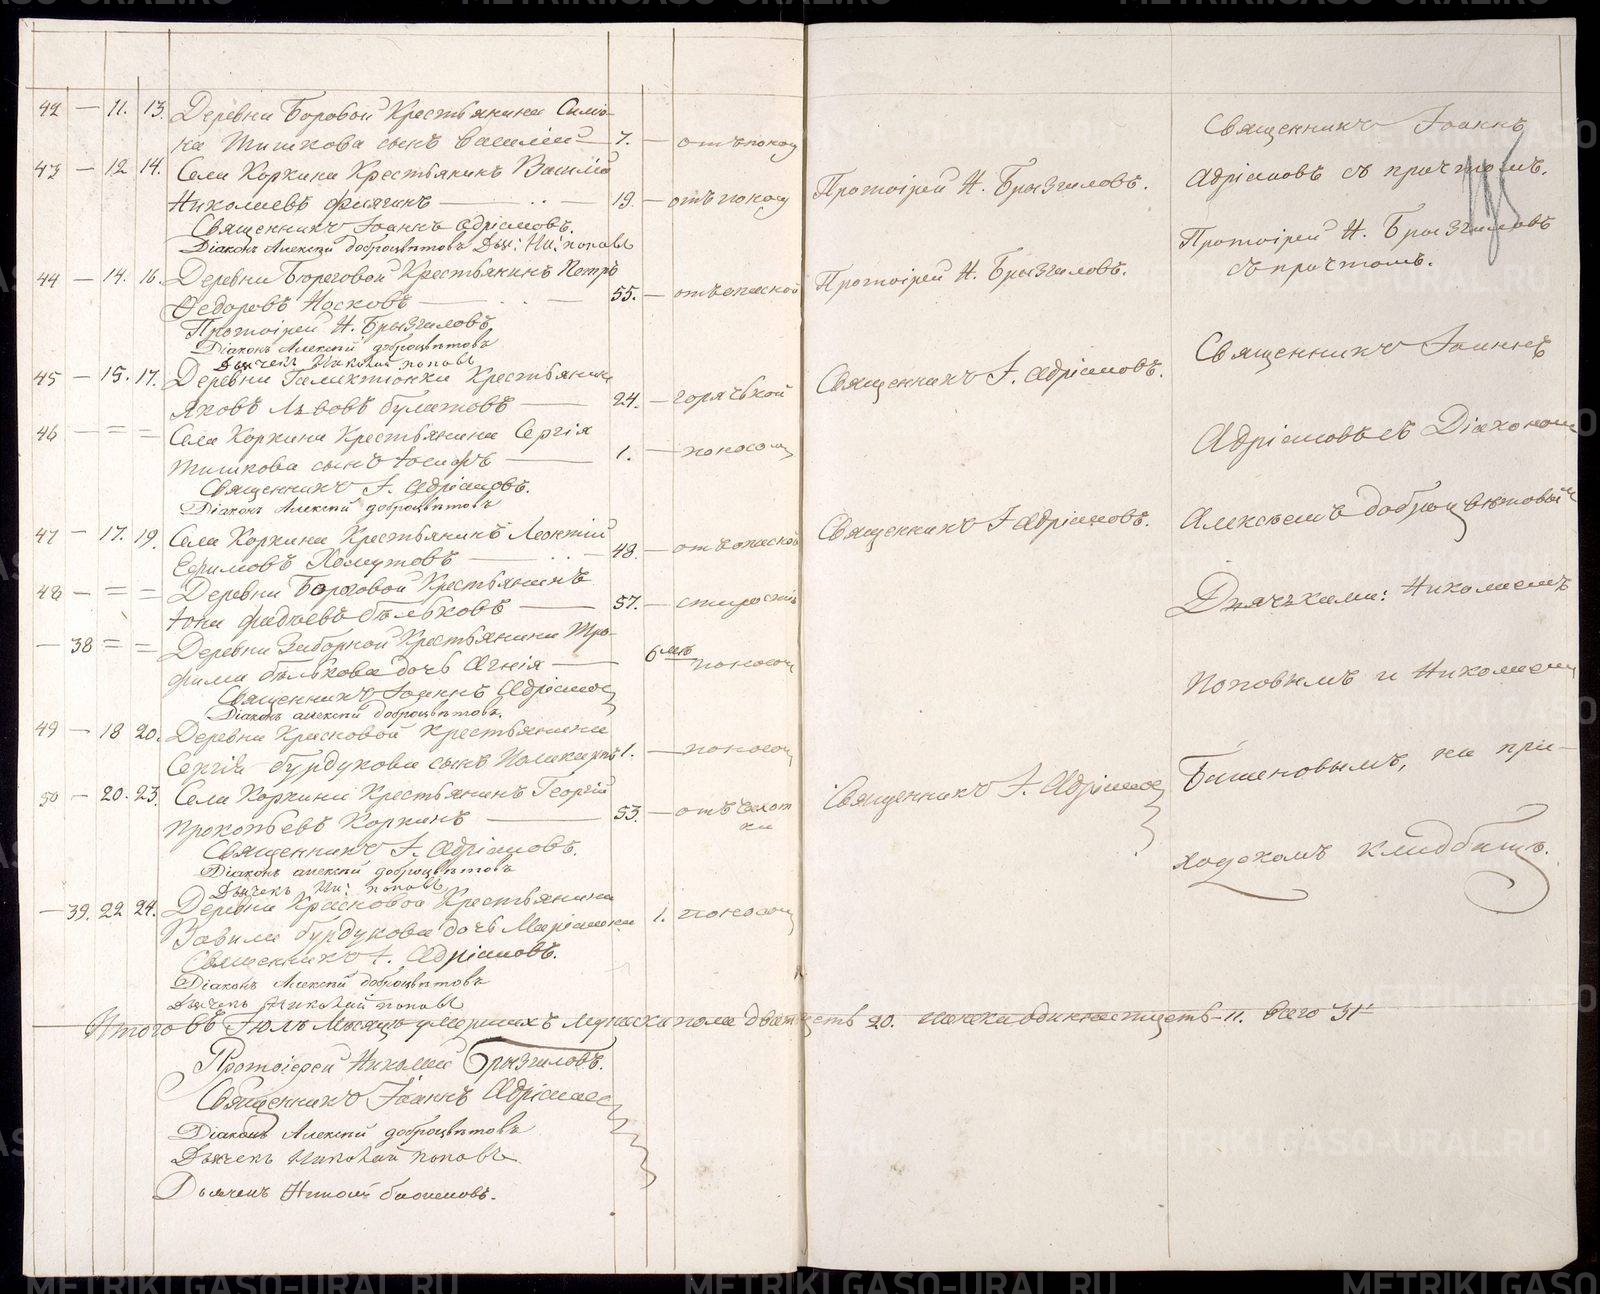 42 — 11. 13. Деревни Боровой Крестьянина Симо-
на Тишкова сынъ Василій — 7. — отъ поносу
43 — 12 14. Села Коркина Крестьянинъ Василій
Николаевъ — 19. — отъ поносу
Священникъ Іоаннъ Адріановъ.
Діаконъ Алексій Доброцвѣтовъ Дьяч: Ни: Поповъ
44 — 14. 16. Деревни Крестьянинъ Петръ
Федоровъ Носковъ — 55. —
Протоіерей Н. Брызгаловъ
Діаконъ Алексій Доброцвѣтовъ
Дьячекъ Николай Поповъ
45 — 15. 17. Деревни Крестьянинъ
Яковъ Львовъ Булатовъ — 24. — горячькой
46 — = = Села Коркина Крестьянина Сергія
Тишкова сынъ Іосифъ — 1. — поносомъ
Священникъ І. Адріановъ.
Діаконъ Алексій Доброцвѣтовъ
47 — 17. 19. Села Коркина Крестьянинъ Леонтій
Ефимовъ Хомутовъ — 48. —
48 — = = Деревни Крестьянинъ
Іона Фадѣевъ Бѣльковъ — 57. — старостію
— 38 = = Деревни Заборной Крестьянина Тро-
фима Бѣлькова дочь Агнія — 6 мѣ поносомъ
Священникъ Іоаннъ Адріановъ
Діаконъ Алексій Доброцвѣтовъ.
49 — 18 20. Деревни Красновой Крестьянина
Сергія Бурдукова сынъ Поликарпъ 1. — поносомъ
50 — 20. 23. Села Коркина Крестьянинъ Георгій
Прокопьевъ Коркинъ — 53. — отъ чахот
ки
Священникъ І. Адріановъ.
Діаконъ Алексій Доброцвѣтовъ
Дьячекъ Ни: Поповъ
— 39. 22 24. Деревни Красновой Крестьянина
Вавилы Бурдукова дочь Маріамна 1. поносомъ
Священникъ І. Адріановъ.
Діаконъ Алексій Доброцвѣтовъ
Дьячекъ Николай Поповъ
Итого въ Іюлѣ Мѣсяцѣ умершихъ мужска пола двадцеть 20. женска одиннатцеть — 11. всего 31
Протоіерей Николай Брызгаловъ.
Священникъ Іоаннъ Адріановъ
Діаконъ Алексій Доброцвѣтовъ
Дьячекъ Николай Поповъ
Дьячекъ Николай Баженовъ.
Протоіерей Н. Брызгаловъ.
Протоіерей Н. Брызгаловъ.
Священникъ І. Адріановъ.
Священникъ І. Адріановъ.
Священникъ І. Адріановъ
Священникъ Іоаннъ
Адріановъ съ причтомъ.
Протоіерей Н. Брызгаловъ
съ причтомъ.
Священникъ Іоаннъ
Адріановъ съ Діакономъ
Алексѣемъ Доброцвѣтовымъ
Дьячьками: Николаемъ
Поповымъ и Николаемъ
Баженовымъ, на при-
ходскомъ кладбищѣ.
METRIKI.GASO-URAL.RU